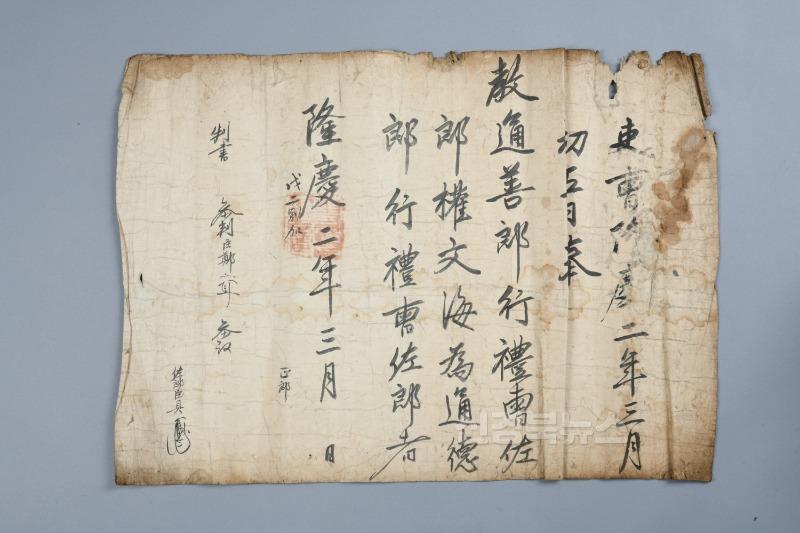 吏曹隆慶二年三月
初五日奉
教通善郎行禮曹佐
郎權文海為通德
郎行禮曹佐郎者
隆慶二年三月 日
正郎
判書 參判臣 參議
佐郎臣具